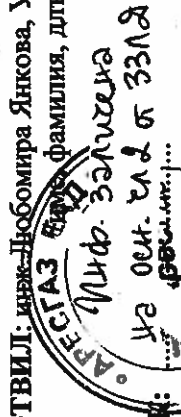 ТВИЛ: инж. Любомира Янкова, У
фамилия, дли
АРЕСГАЗ
Инф. заличена
на осн. чл2 от ЗЗЛД